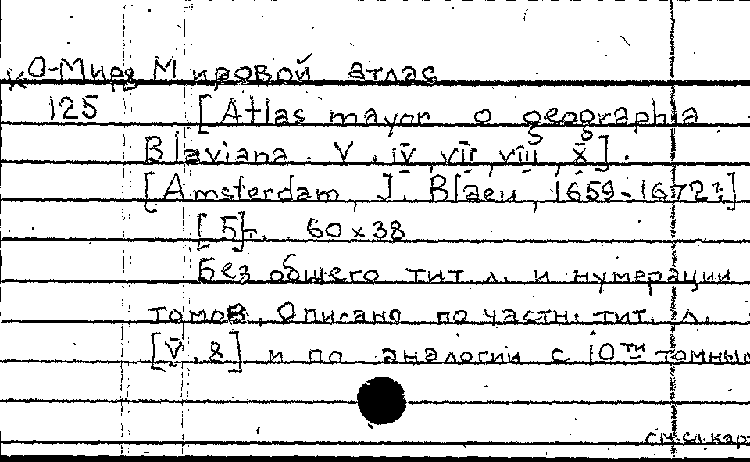 К О-Мир Мировой атлас
125 [Atlas mayor o geographia
Blaviana. V. IV, VII, VIII, X].
[Amsterdam, J. Blaeu, 1659-1672?]
[5]т. 60x38
Без общего тит. л. и нумерации
томов. Описано по частн. тит. л.
[V. 8] и по аналогии с 10ти томным
см. сл. кар